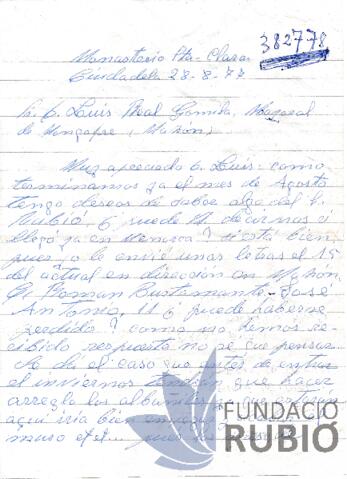 382778
Monasterio Sta-Clara
Ciudadela 28-8-77
Sr. D. Luis Real Gomila, Mayoral
de Monçofre, (Mahón)
Muy apreciado D. Luis: como
terminamos ya el mes de Agosto
tengo deseos de saber algo del Sr.
Rubió, ¿puede U. decirnos si
llegó ya en Menorca? si está bien,
pues yo le envié unas letras el 15
del actual en dirección en Mahón,
Cl Roman Bustamante-José
Antonio, 11 ¿puede haberse
perdido? como no hemos re-
cibido respuesta no sé que pensar.
Se da el caso que antes de entrar
el invierno tendrán que hacer
arreglo los albañiles
aquí iría bien
muro etc... pues
FUNDACIÓ
RUBIÓ